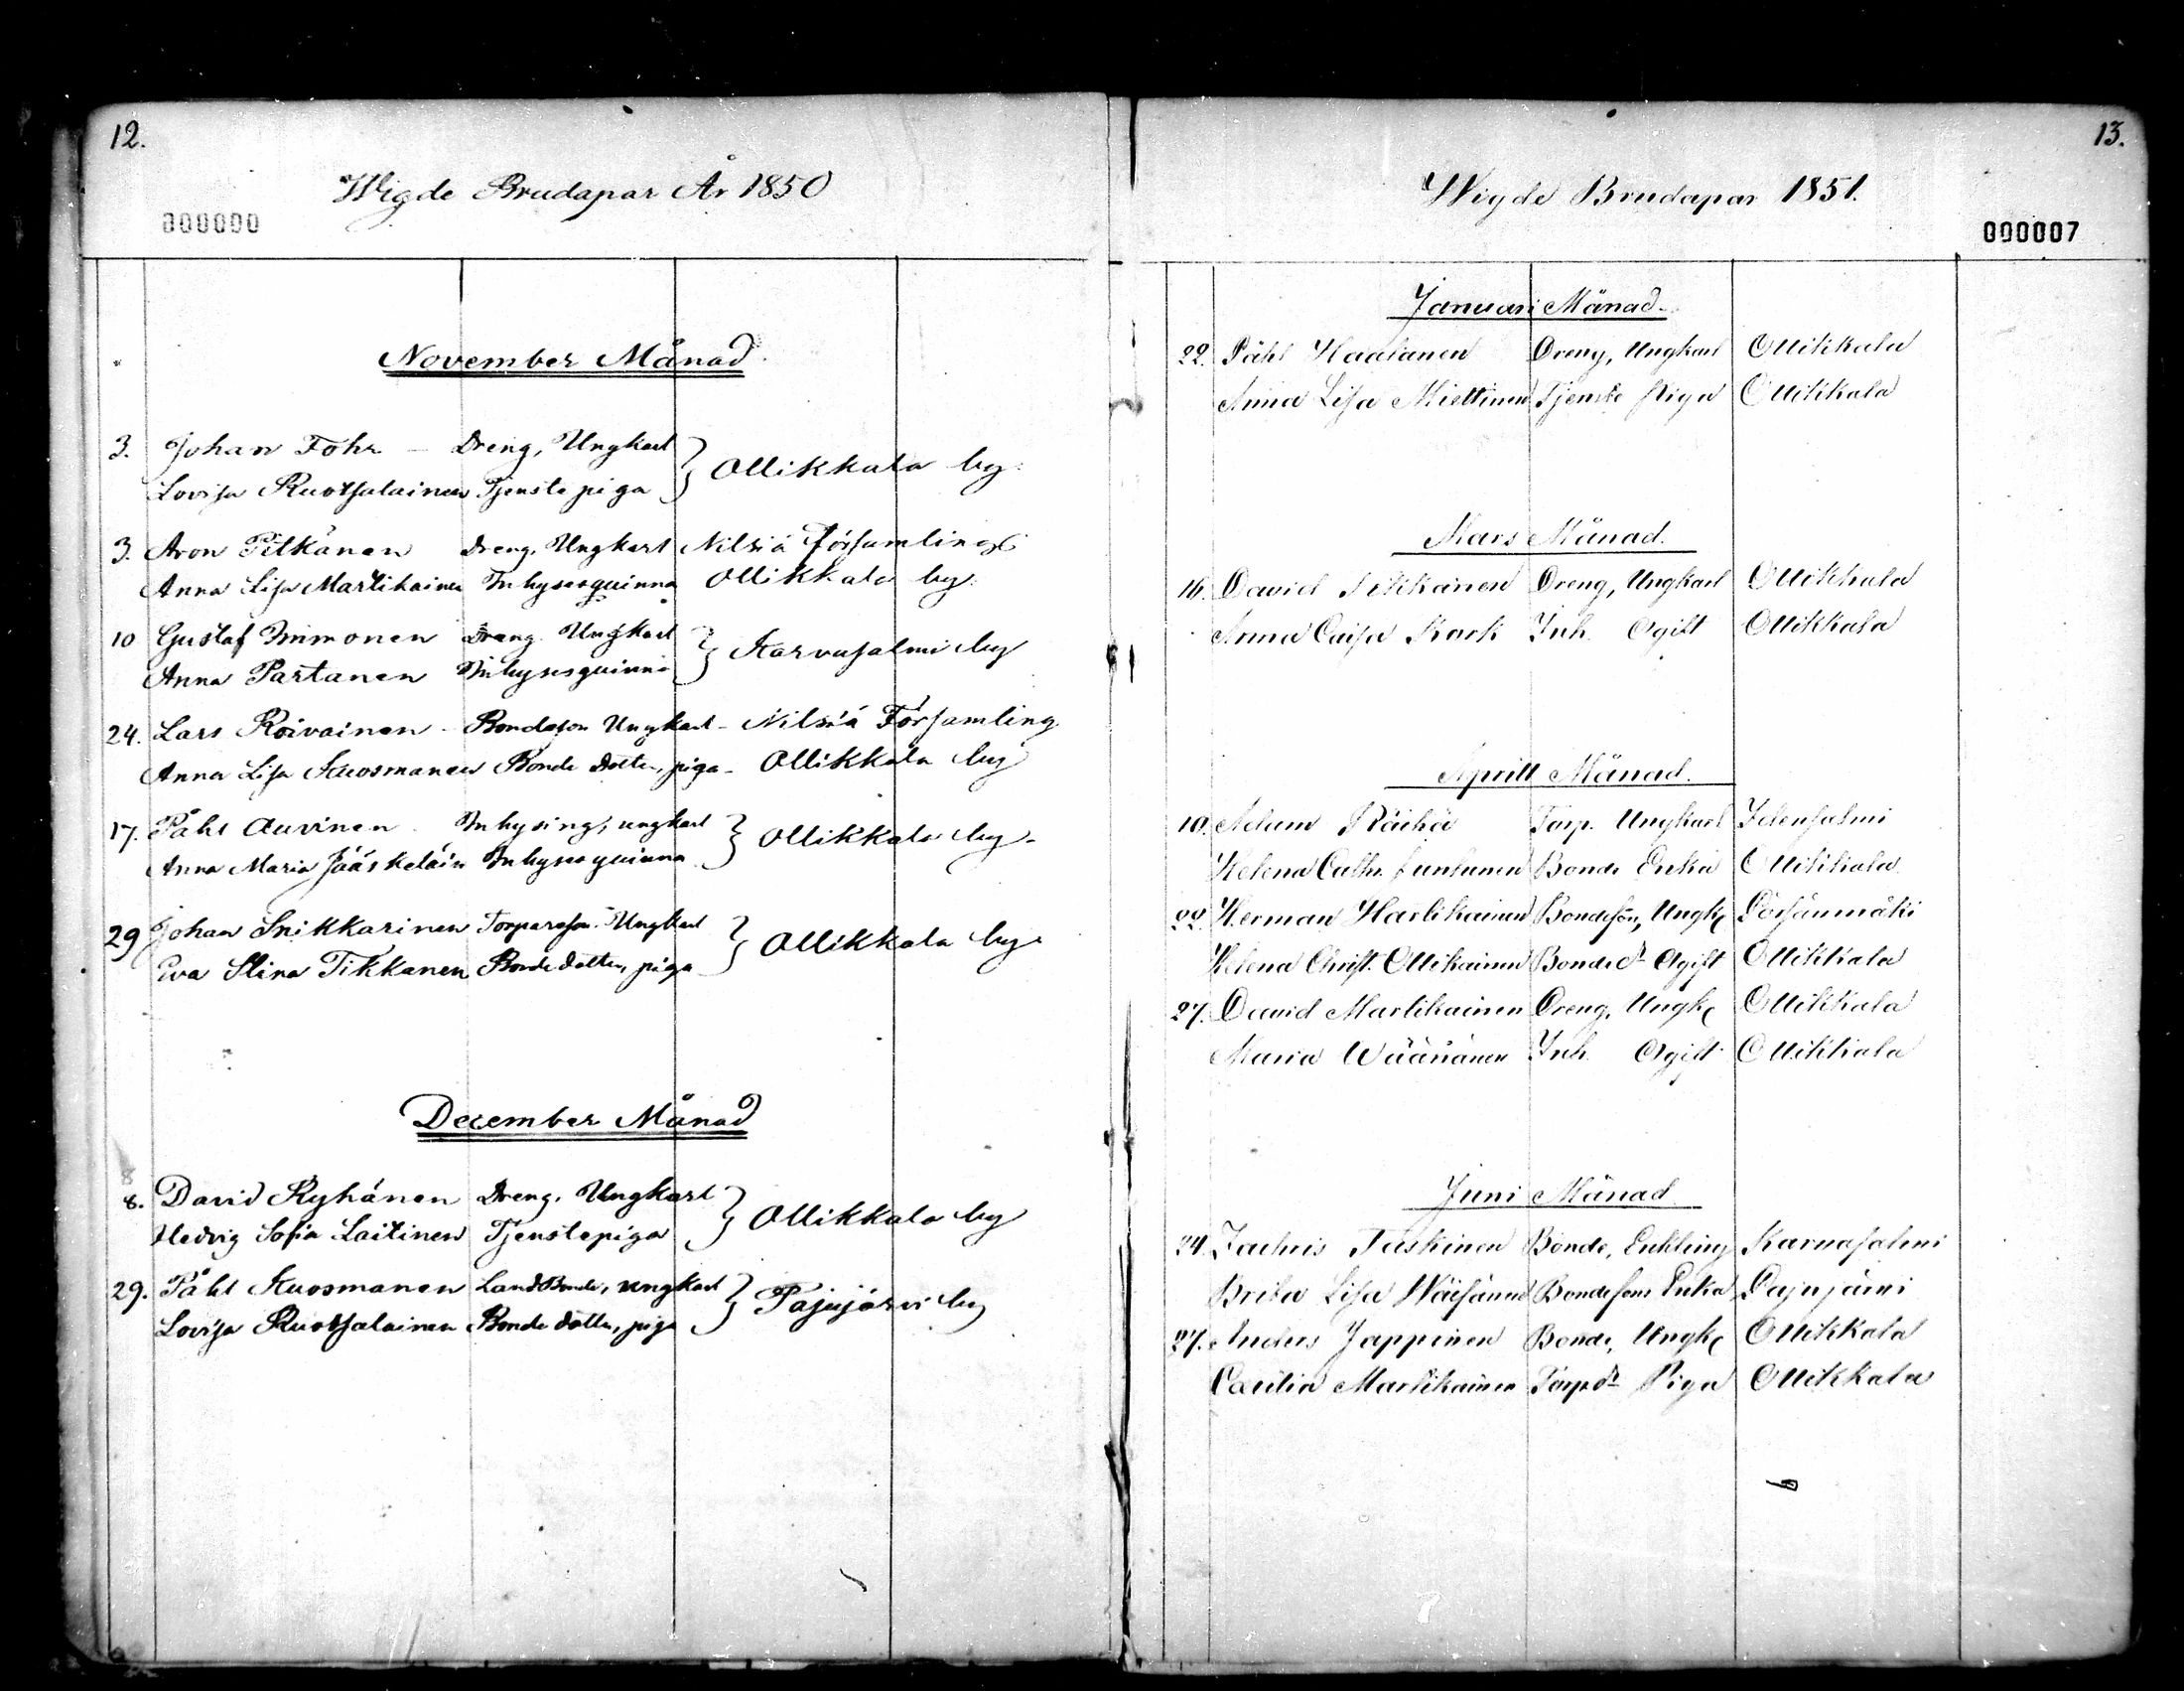 12.
Wigde Brudapar År 1850
000000
November Månad
3. Johan Fohr – Dreng, Ungkarl } Ollikkala by
Lovisa Ruotsalainen Tjenstepiga
3. Aron Pitkänen Dreng, Ungkarl Nilsiä Församling
Anna Lisa Martikainen Inhysesqvinna Ollikkala by
10 Gustaf Immonen Dreng Ungkarl } Karvasalmi by
Anna Partanen Inhysesqvinna
24. Lars Roivainen – Bondeson Ungkarl – Nilsiä Församling
Anna Lisa Kuosmanen Bonde dotter, piga – Ollikkala by
17. Påhl Auvinen Inhysing, ungkarl } Ollikkala by
Anna Maria Jääskeläin Inhysesqvinna
29 Johan Snikkarinen Torpareson Ungkarl } Ollikkala by
Eva Stina Tikkanen Bondedotter, piga
December Månad
8
8. David Ryhänen Dreng, Ungkarl } Ollikkala by
Hedvig Sofia Laitinen Tjenstepiga
29. Påhl Kuosmanen LandBonde, ungkarl } Pajujärvi by
Lovisa Ruotsalainen Bonde dotter, piga
13.
Wigde Brudapar 1851.
000007
Januari Månad
22. Påhl Haatanen Dreng, Ungkarl Ollikkala
Anna Lisa Miettinen Tjenste Piga Ollikkala
Mars Månad.
16. David Pitkänen Dreng, Ungkarl Ollikkala
Anna Caisa Kork Inh. Ogift Ollikkala
Aprill Månad.
10. Adam Räihä Torp. Ungkarl Idensalmi
Helena Cathr. Juntunen Bonde Enka Ollikkala
22. Herman Hartikainen Bondeson, Ungk. Pörsänmäki
Helena Christ. Ollikainen Bonded:r Ogift Ollikkala
27. David Martikainen Dreng, Ungk. Ollikkala
Maria Wäänänen Inh. Ogift Ollikkala
Juni Månad
24. Zachris Taskinen Bonde, Enkling Karvasalmi
Brita Lisa Wäisänen Bondesons Enka Pajujärvi
27. Anders Jappinen Bonde, Ungk. Ollikkala
Cæcilia Martikainen Torpd:r Piga Ollikkala